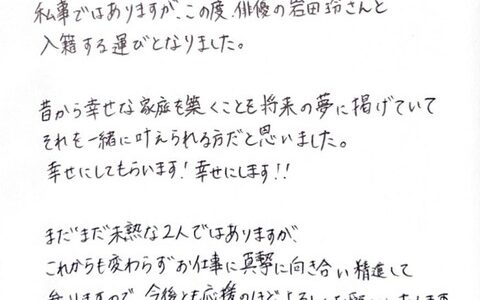 私事ではありますが、この度、俳優の岩田玲さんと
入籍する運びとなりました。
昔から幸せな家庭を築くことも将来の夢に掲げていて
それを一緒に叶えられる方だと思いました。
幸せにしてもらいます!幸せにします!!
まだまだ未熟な2人ではありますが、
これからも変わらずお仕事に真摯に向き合い精進して
参りますので、今後とも応援のほどよろしくお願いいたします